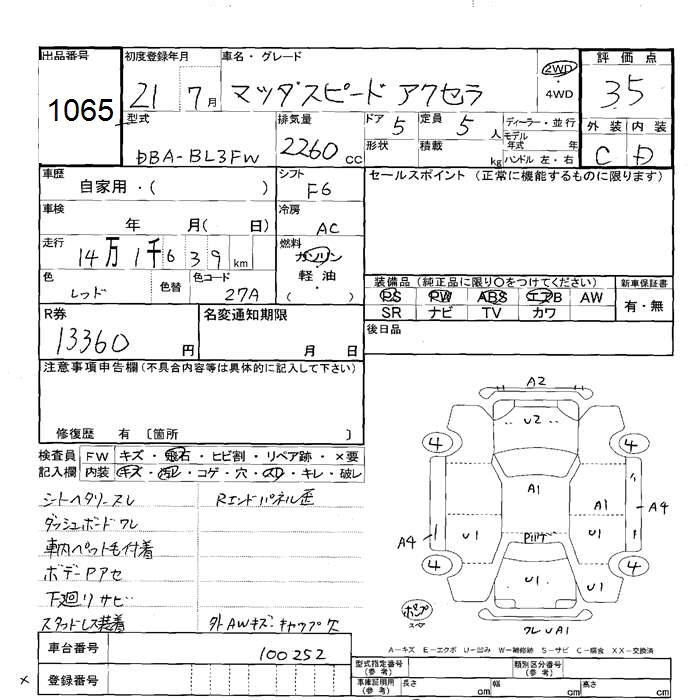 出品番号 初度登録年月 車名・グレード 2WD 評価点
1065 21 7月 マツダスピード アクセラ ・4WD 3.5
型式 排気量 ドア 5 定員 5人 ディーラー・並行 外装 内装
DBA-BL3FW 2260cc 形状 積載 kg モデル年式 年 ハンドル 左・右 C D
車歴 シフト セールスポイント (正常に機能するものに限ります)
自家用・( ) F6
車検 冷房
年 月( 日) AC
走行 燃料
14万 1千 6 3 9 km ガソリン
色 色替 色コード 軽・油
レッド 27A ( ・ )
装備品 (純正品に限り〇をつけてください) 新車保証書
PS PW ABS エアB AW 有・無
SR ナビ TV カワ
R券 名変通知期限 後日品
13360 円 月 日
注意事項申告欄 (不具合内容等は具体的に記入して下さい)
修復歴 有 〔箇所 〕
検査員 FW キズ・飛石・ヒビ割・リペア跡・×要
記入欄 内装 キズ・汚レ・コゲ・穴・スレ・キレ・破レ
シートヘタリースレ Rエンドパネル歪
ダッシュボードワレ
車内ペットも付着
ボデーPアセ
下廻りサビ
スタットレス装着 外AWキズ・キャップ欠
A2
U2
4 4
A1 A1 A4
A4 U1 U1
4 U1 4
ポンプ
スペア
ワレUA1
A-キズ E-エクボ U-凹み W-補修跡 S-サビ C-腐食 XX-交換済
車台番号 100252
型式指定番号 (参考) 類別区分番号 (参考)
× 登録番号
車庫証明用 (参考) 長さ cm 幅 cm 高さ cm